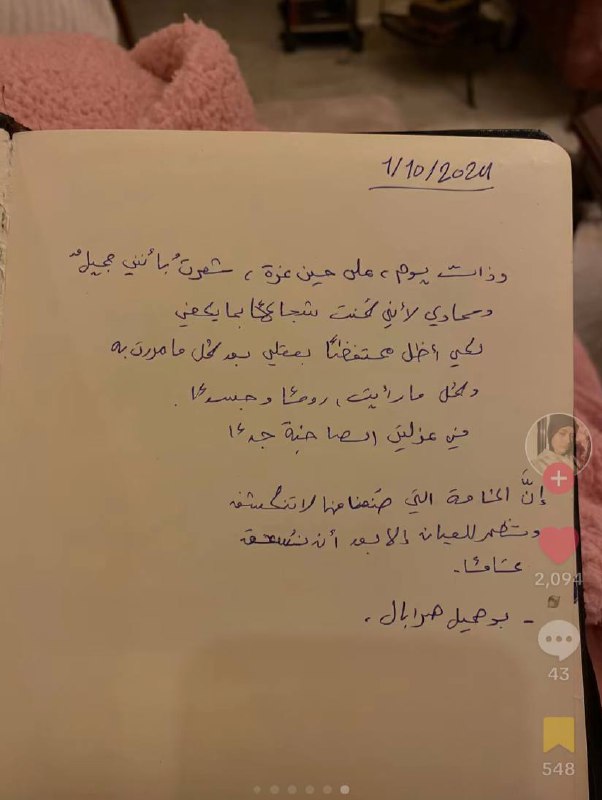 1/10/2024
وذات يوم، على حين غرة، شعرتُ بأنني جميلٌ
وسماوي لأنني كنت شجاعًا بما يكفي
لكي أظل محتفظًا بعقلي بعد كل ما مررت به
وكل ما رأيت، روحًا وجسدًا.
في عزلتي الصاخبة جدًا
إنَّ الخامة التي صُنعنا منها لا تنكشف
وتظهر للعيان إلا بعد أن نُسحق
تمامًا.
- بوهميل هرابال.
2,094
43
548